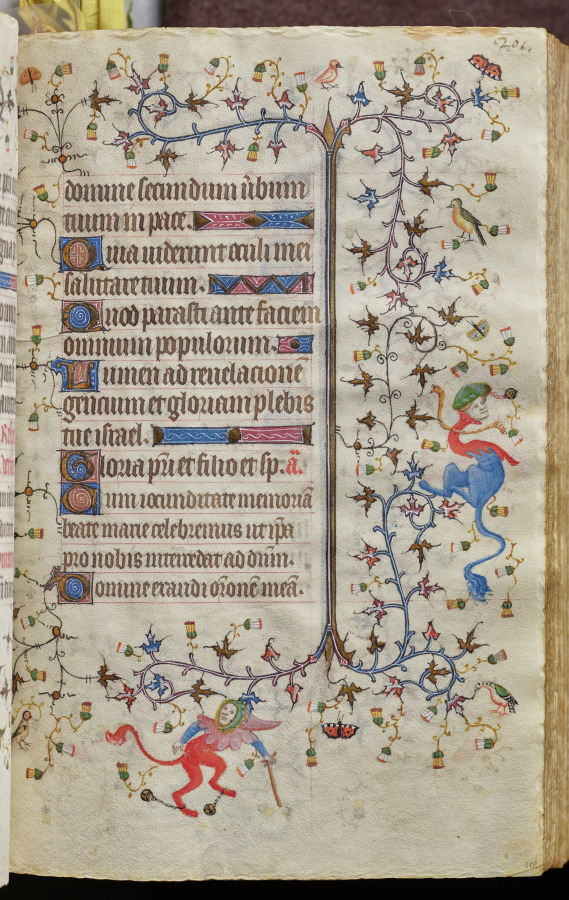 206.
domine secundum ūbum
tuum in pace.
Quia uiderunt oculi mei
salutare tuum.
Quod parasti ante faciem
omnium populorum.
Lumen ad reuelacionē
gencium et gloriam plebis
tue israel.
Gloria pr̄i et filio et sp. a̋.
Cum iocunditate memoriā
beate marie celebremus ut ip̄a
pro nobis intercedat ad dn̄m.
Domine exaudi or̄onē meā.